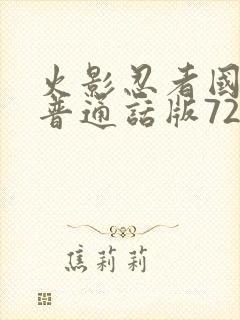 火影忍者國
普通話版72
焦莉莉